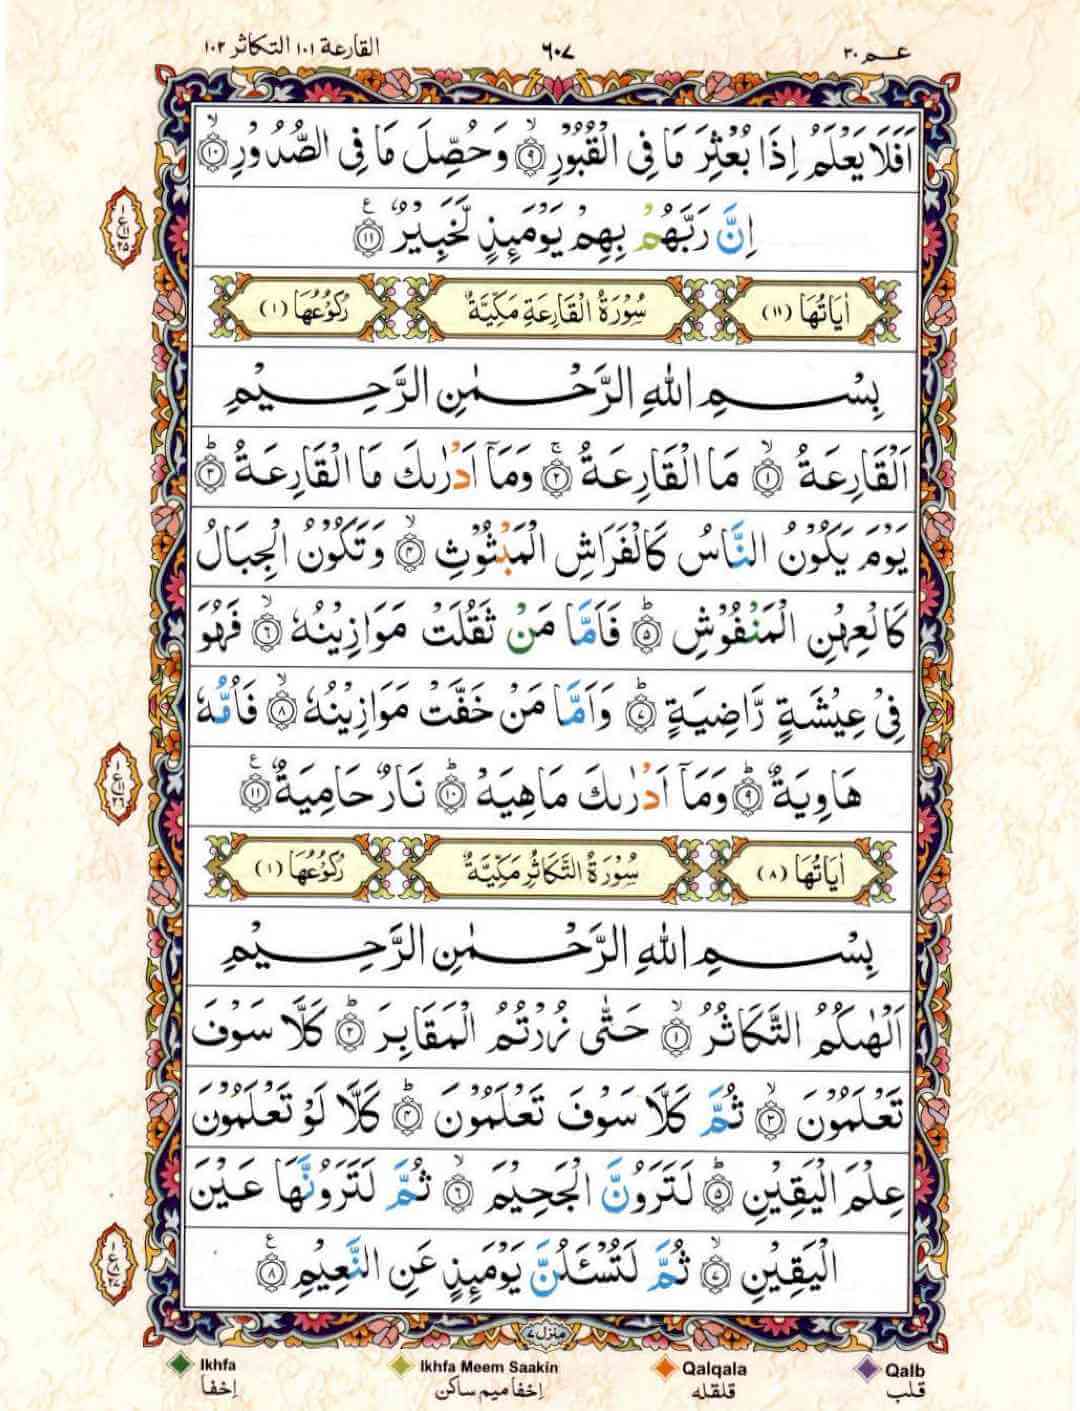 عـم ٣٠
٦٠٧
القارعة ١٠١ التكاثر ١٠٢
اَفَلَا يَعْلَمُ اِذَا بُعْثِرَ مَا فِی الْقُبُوْرِ ۙ﴿۹﴾ وَحُصِّلَ مَا فِی الصُّدُوْرِ ۙ﴿۱۰﴾
اِنَّ رَبَّهُمْ بِهِمْ يَوْمَىِٕذٍ لَّخَبِيْرٌ ﴿۱۱﴾
اٰيَاتُهَا (۱۱)
سُوْرَةُ الْقَارِعَةِ مَكِّيَّةٌ
رُكُوْعُهَا (۱)
بِسْمِ اللهِ الرَّحْمٰنِ الرَّحِيْمِ
اَلْقَارِعَةُ ۙ﴿۱﴾ مَا الْقَارِعَةُ ۚ﴿۲﴾ وَمَآ اَدْرٰىكَ مَا الْقَارِعَةُ ؕ﴿۳﴾
يَوْمَ يَكُوْنُ النَّاسُ كَالْفَرَاشِ الْمَبْثُوْثِ ۙ﴿۴﴾ وَتَكُوْنُ الْجِبَالُ
كَالْعِهْنِ الْمَنْفُوْشِ ؕ﴿۵﴾ فَاَمَّا مَنْ ثَقُلَتْ مَوَازِيْنُهٗ ۙ﴿۶﴾ فَهُوَ
فِیْ عِيْشَةٍ رَّاضِيَةٍ ؕ﴿۷﴾ وَاَمَّا مَنْ خَفَّتْ مَوَازِيْنُهٗ ۙ﴿۸﴾ فَاُمُّهٗ
هَاوِيَةٌ ؕ﴿۹﴾ وَمَآ اَدْرٰىكَ مَاهِيَهْ ؕ﴿۱۰﴾ نَارٌ حَامِيَةٌ ﴿۱۱﴾
اٰيَاتُهَا (۸)
سُوْرَةُ التَّكَاثُرِ مَكِّيَّةٌ
رُكُوْعُهَا (۱)
بِسْمِ اللهِ الرَّحْمٰنِ الرَّحِيْمِ
اَلْهٰىكُمُ التَّكَاثُرُ ۙ﴿۱﴾ حَتّٰى زُرْتُمُ الْمَقَابِرَ ؕ﴿۲﴾ كَلَّا سَوْفَ
تَعْلَمُوْنَ ۙ﴿۳﴾ ثُمَّ كَلَّا سَوْفَ تَعْلَمُوْنَ ؕ﴿۴﴾ كَلَّا لَوْ تَعْلَمُوْنَ
عِلْمَ الْيَقِيْنِ ؕ﴿۵﴾ لَتَرَوُنَّ الْجَحِيْمَ ۙ﴿۶﴾ ثُمَّ لَتَرَوُنَّهَا عَيْنَ
الْيَقِيْنِ ۙ﴿۷﴾ ثُمَّ لَتُسْـَٔلُنَّ يَوْمَىِٕذٍ عَنِ النَّعِيْمِ ﴿۸﴾
منزل ۷
Ikhfa
اِخفا
Ikhfa Meem Saakin
اِخفا میم ساکن
Qalqala
قلقله
Qalb
قلب